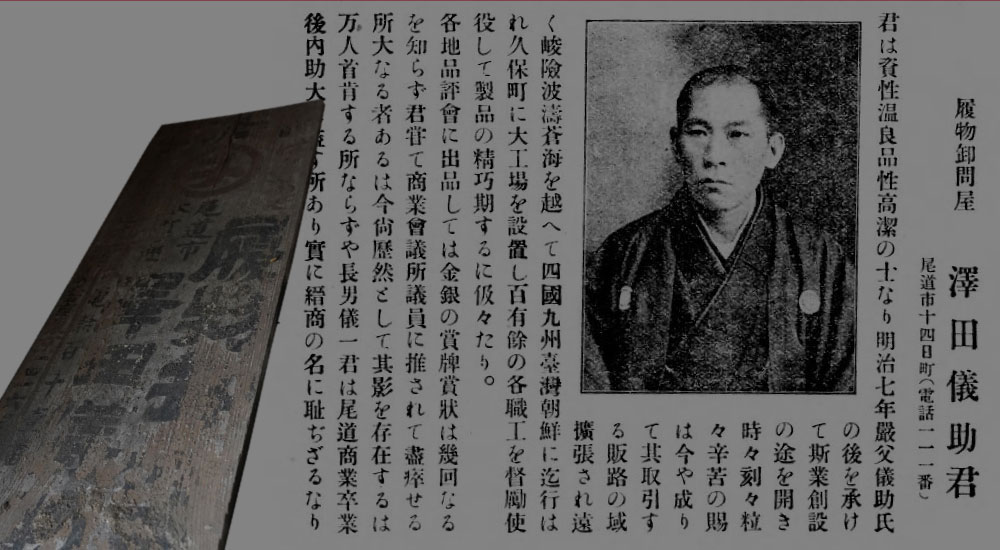 履物卸問屋
澤田儀助君
尾道市十四日町(電話一一一番)
君は資性温良品性高潔の士なり明治七年嚴父儀助氏
の後を承け
て斯業創設
の途を開き
時々刻々粒
々辛苦の賜
は今や成り
て其取引す
る販路の域
擴張され遠
く峻險波濤蒼海を越へて四國九州臺灣朝鮮に迄行は
れ久保町に大工場を設置し百有餘の各職工を督勵使
役して製品の精巧期するに伋々たり。
各地品評會に出品しては金銀の賞牌賞狀は幾回なる
を知らず君甞て商業會議所議員に推されて盡瘁せる
所大なる者あるは今尙歷然として其影を存在するは
万人首肯する所ならずや長男儀一君は尾道商業卒業
後內助大す所あり實に縉商の名に耻ぢざるなり
尾道市
履物
澤田